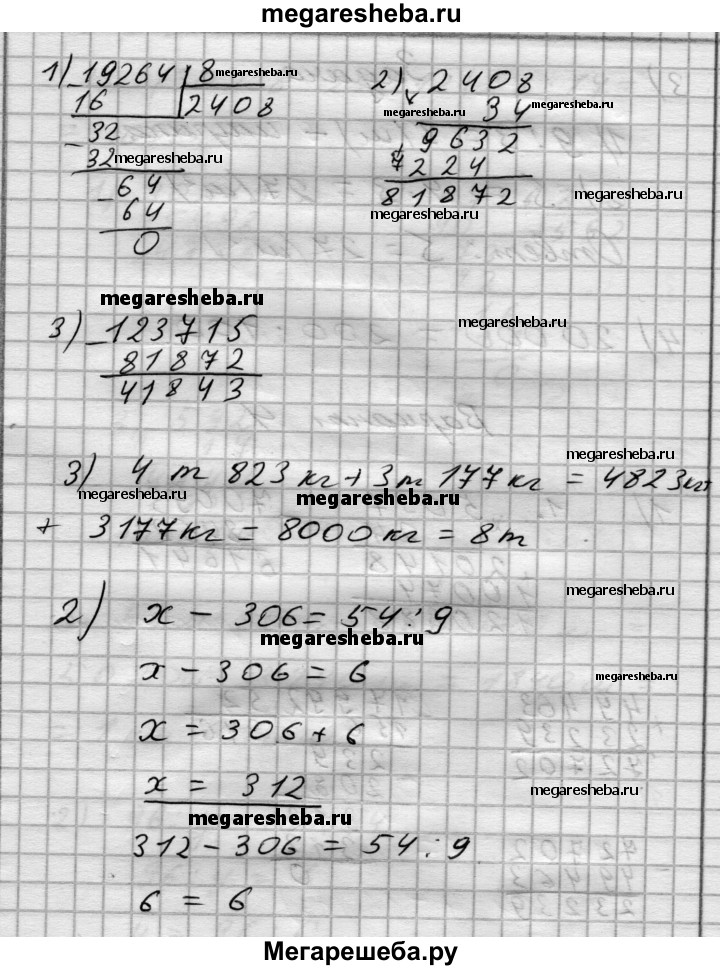 megaresheba.ru
1) 19264 | 8 megaresheba.ru
16 2408
- 32
32 megaresheba.ru
- 64
64
0
2) 2408
34 megaresheba.ru
9632
7224
81872
megaresheba.ru
megaresheba.ru
megaresheba.ru
3) - 123715
81872
41843
megaresheba.ru
megaresheba.ru
3) 4 т 823 кг + 3 т 177 кг = 4823 кг
megaresheba.ru
megaresheba.ru
+ 3177 кг = 8000 кг = 8 т
megaresheba.ru
2) x - 306 = 54 : 9
megaresheba.ru
x - 306 = 6
megaresheba.ru
x = 306 + 6
x = 312
megaresheba.ru
megaresheba.ru
312 - 306 = 54 : 9
6 = 6
Мегарешеба.ру